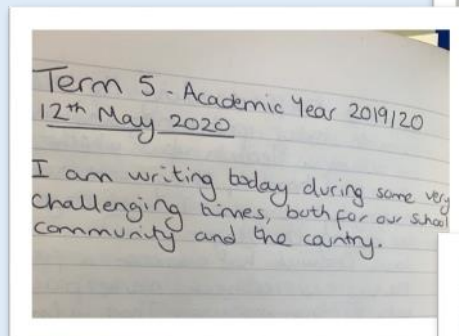 Term 5 - Academic Year 2019/20
12th May 2020
I am writing today during some very
challenging times, both for our school
community and the country.